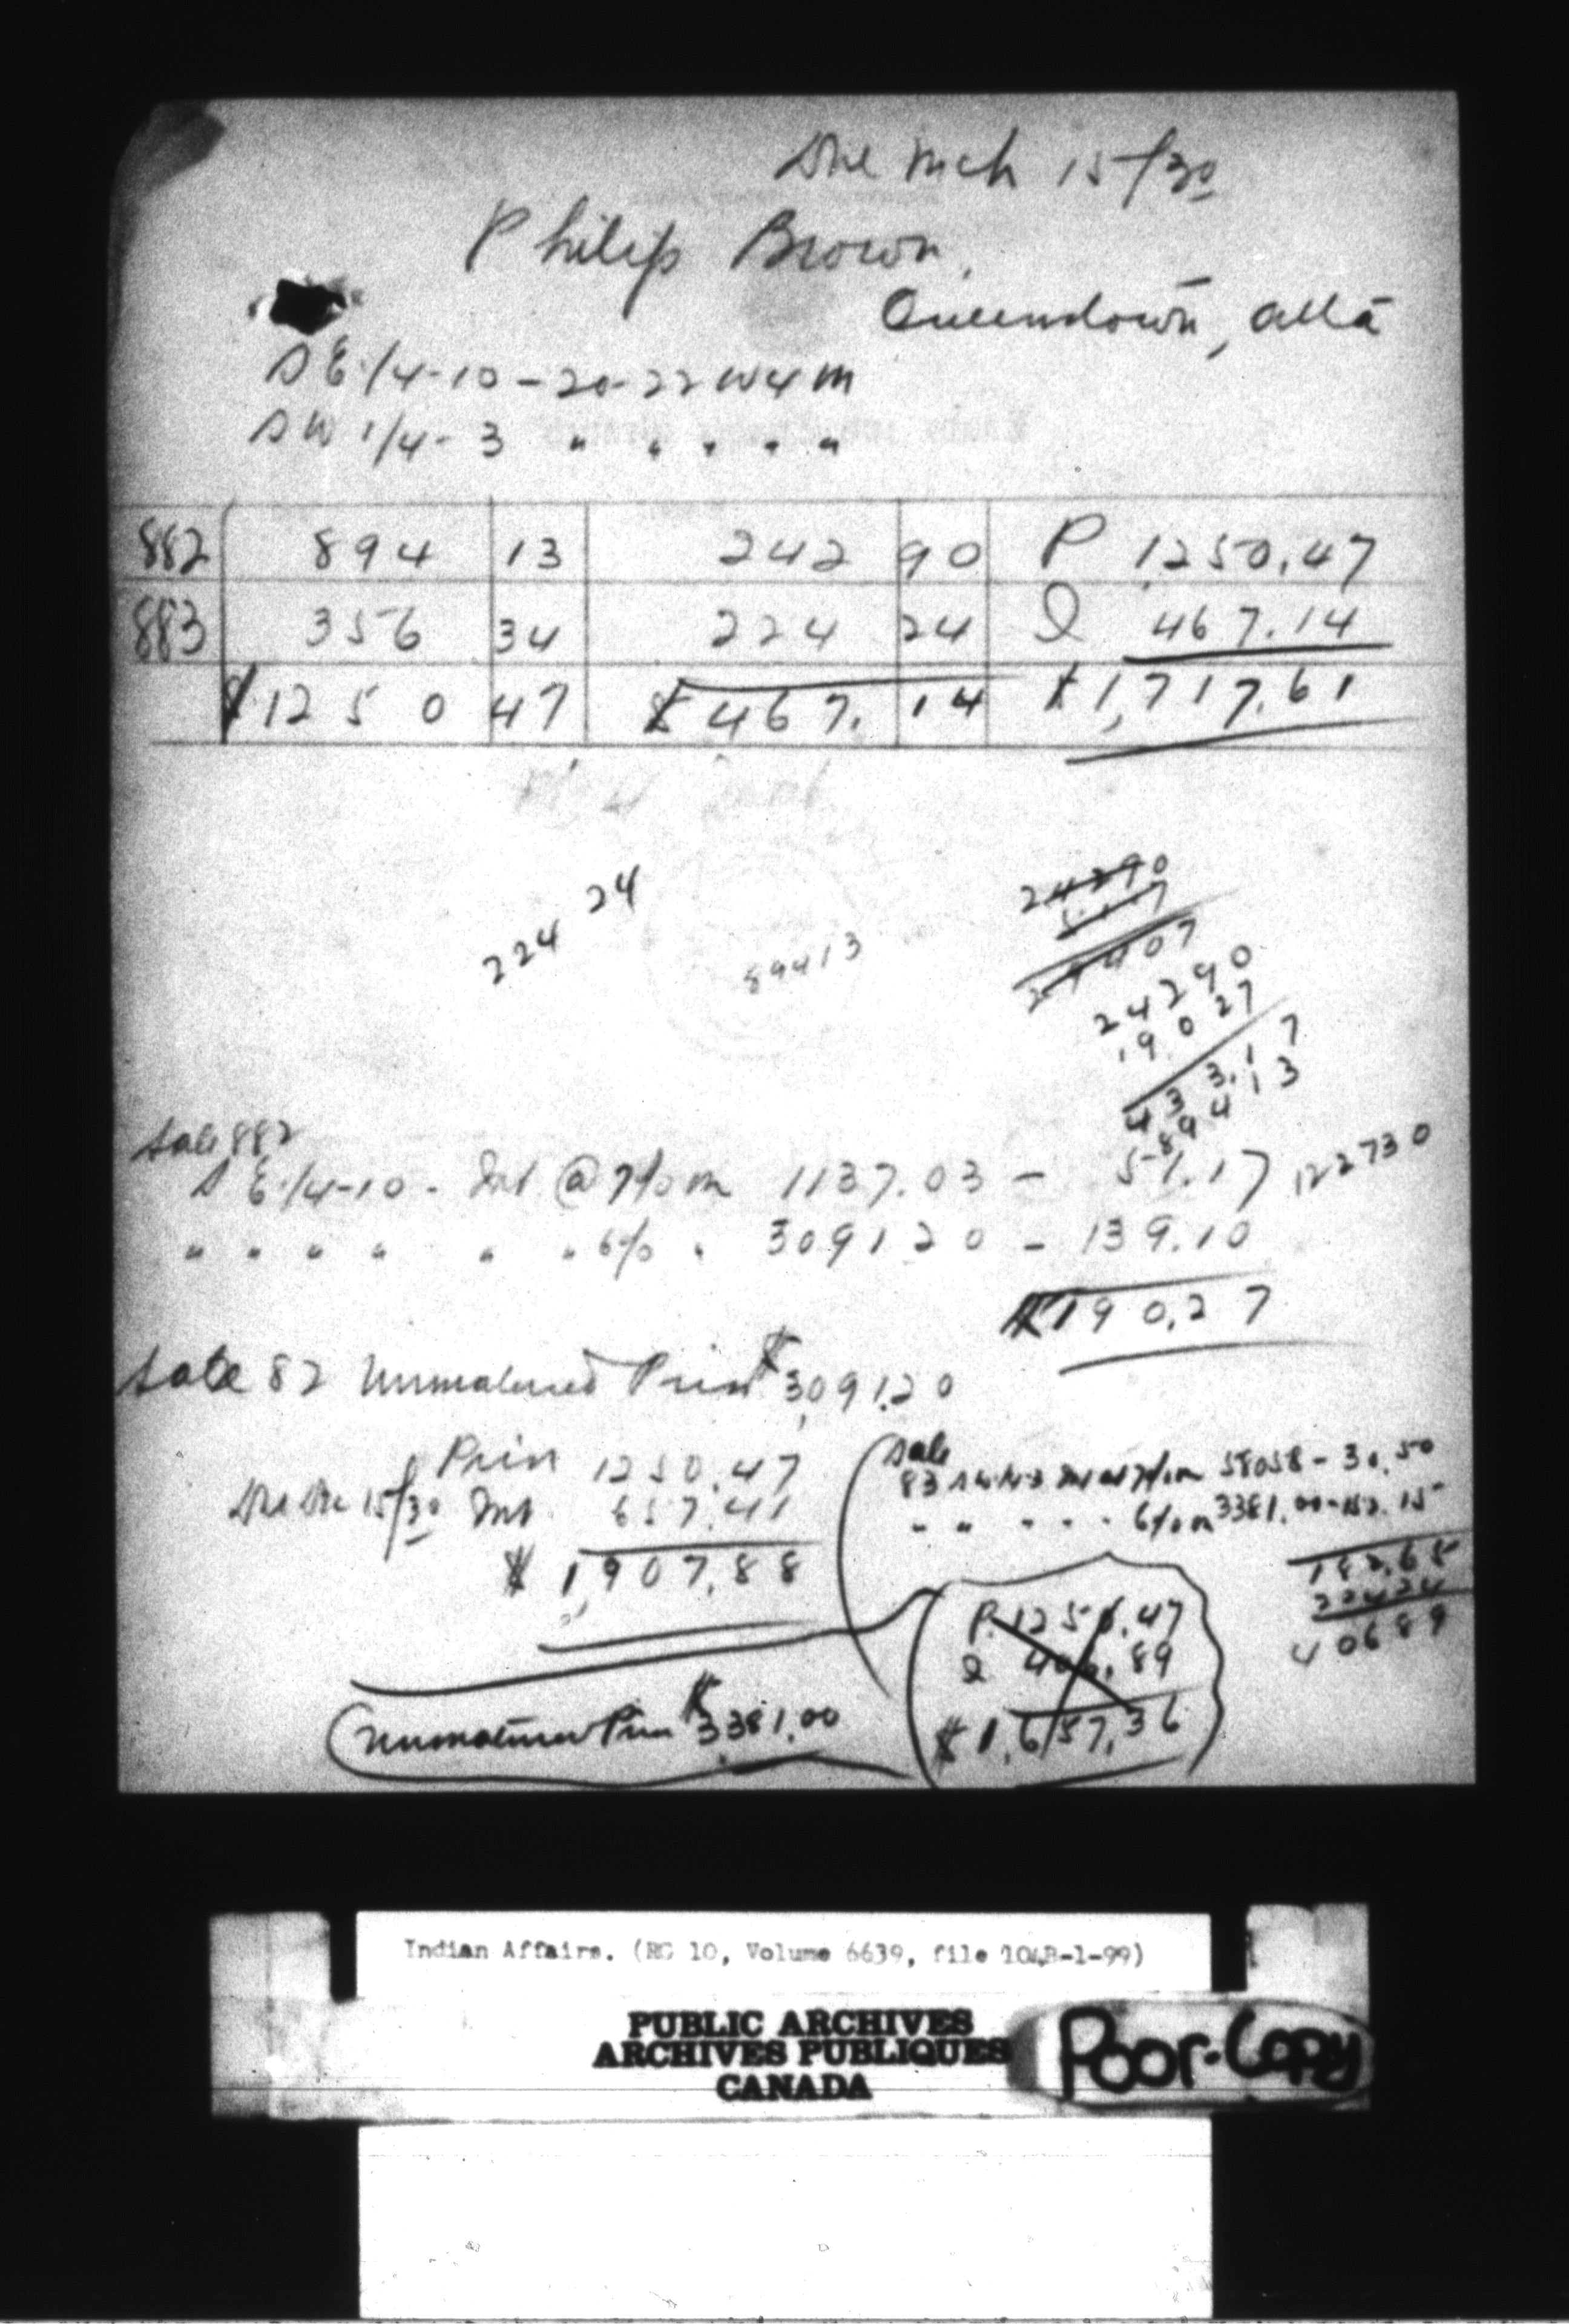 Due Mch 15/30
Philip Brown,
Queenstown, Alta
SE 1/4-10-20-22 W4M
SW 1/4-3 " " " " "
882 894 13 242 90 P 1,250.47
883 356 34 224 24 I 467.14
$1250 47 $467. 14 $1,717.61
224 24
89413
24290
5117
29407
24290
19027
433.17
89413
122730
Sale 882
SE 1/4-10 - Int @ 7% on 1137.03 - 51.17
" " " " " " 6% " 309120 - 139.10
$190.27
Sale 82 Unmatured Prin $3,091.20
Prin 1250.47
Due Dec 15/30 Int. 657.41
$1,907.88
Sale
83 SW 1/4-3 Int at 7% on 58058 - 30.50
" " " " " 6% on 3381.00 - 152.15
182.65
22424
40689
P. 1250.47
I 406.89
$1,657.36
Unmatured Prin $3381.00
Indian Affairs. (RG 10, Volume 6639, file 104B-1-99)
PUBLIC ARCHIVES
ARCHIVES PUBLIQUES
CANADA
Poor-Copy